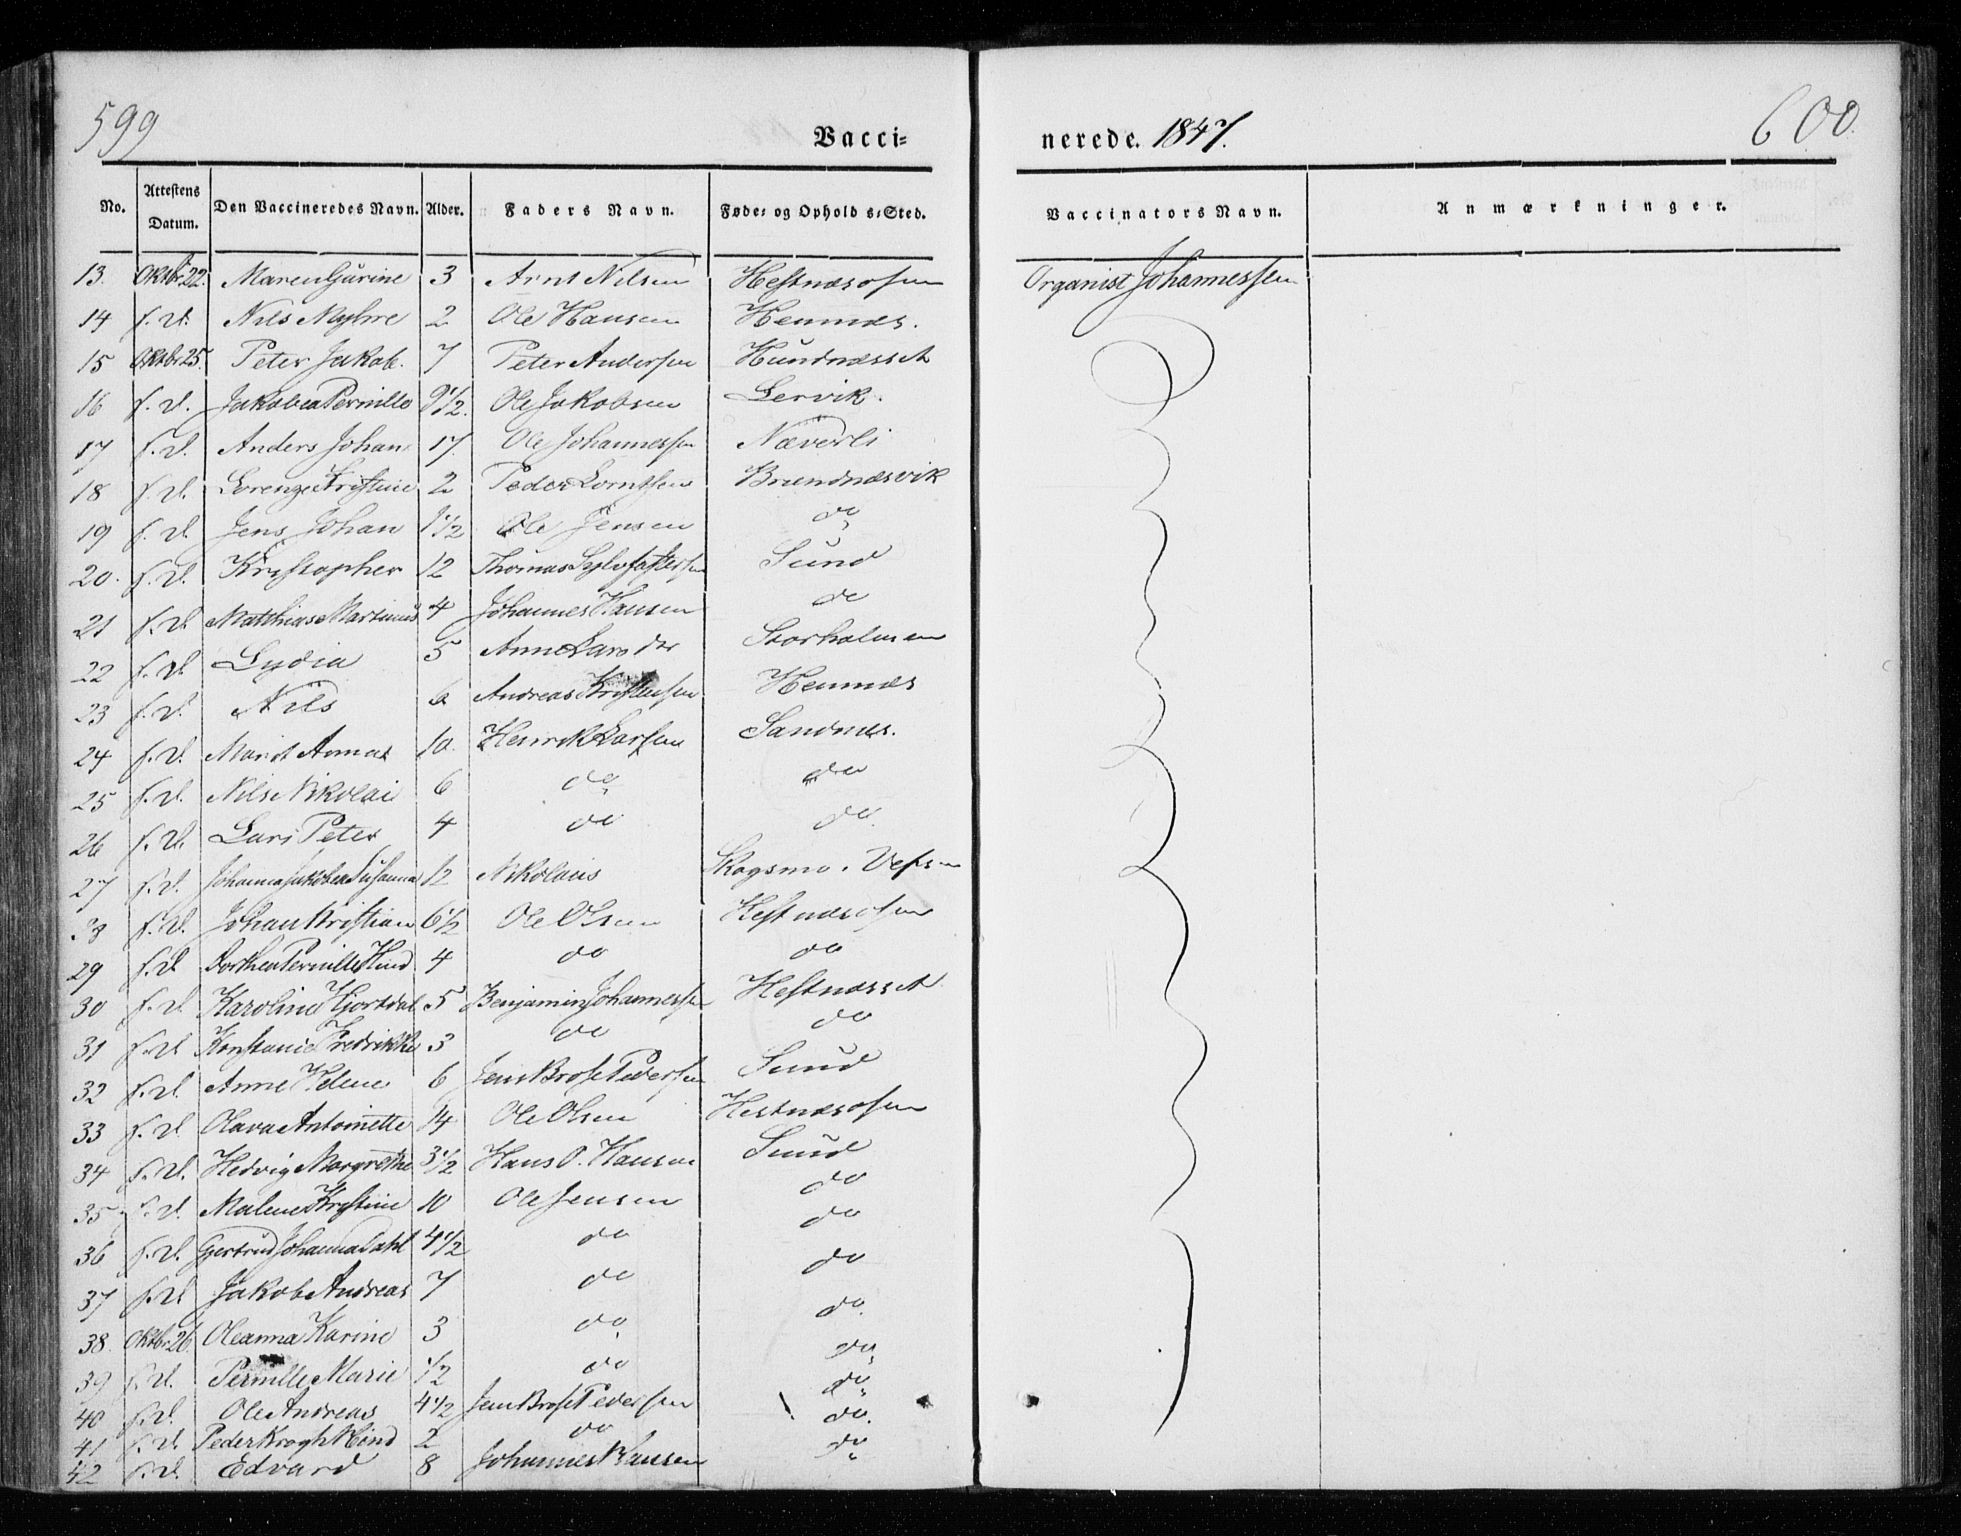 599
Vacci-
nerede. 1847.
600.
No. Attestens Datum. Den Vaccineredes Navn. Alder. Faders Navn. Føde- og Ophold s-Sted. Vaccinators Navn. Anmærkninger.
13. Oktbr 22. Maren Gurine 3 Arnt Nilsen Hestnæsosen Organist Johannessen
14 f. d. Nils Myhre 2 Ole Hansen Hemnæs.
15 Oktbr 25. Peter Jakob. 7 Peter Andersen Hundnæsset
16 f. d. Jakobea Pernille 9 1/2. Ole Jakobsen Lervik.
17 f. d. Anders Johan 17. Ole Johannessen Næverli
18 f. d. Lorenze Kristine 2 Peder Lorntsen Brundnæsvik
19 f. d. Jens Johan 1 1/2 Ole Jensen do
20. f. d. Kristopher 12 Thomas Sylfestersen Sund
21 f. d. Matthias Martinus 4 Johannes Hansen do
22 f. d. Lydia 5 Anne Larsdr Storholmen
23 f. d. Nils 6 Andreas Kristensen Hemnæs
24 f. d. Marit Annas 10. Henrik Larsen Sandnæs.
25 f. d. Nils Nikolai 6 do do
26 f. d. Lars Peter 4 do do.
27 f. d. Johanna Jakobea Susanna 12 Nikolaus Skogsmo i Vefsn
38 f. d. Johan Kristian 6 1/2 Ole Olsen Hestnæsosen
29 f. d Dorthea Pernille Hind 4 do do
30 f. d Karoline Hjortdal 5 Benjamin Johannessen Hestnæsset
31 f. d Konstanse Fredrikke 3 do do
32 f. d. Anne Helene 6 Jens Brose Pedersen Sund
33 f. d Olava Antoinette 14 Ole Olsen Hestnæsosen
34 f. d. Hedvig Margrethe 3 1/2 Hans P. Hansen Sund
35 f. d. Malene Kristine 10 Ole Jensen do
36 f. d. Gjertrud Johanna Dahl 4 1/2 do do
37 f. d Jakob Andreas 7 do do
38. Oktbr 26. Oleanna Karine 3 do do.
39 f. d. Pernille Marie 1/2 do do
40 f. d. Ole Andreas 4 1/2 Jens Brose Pedersen do
41 f. d. Peder Krogh Hind 2 do do.
42 f. d. Edvard 8 Johannes Hansen do